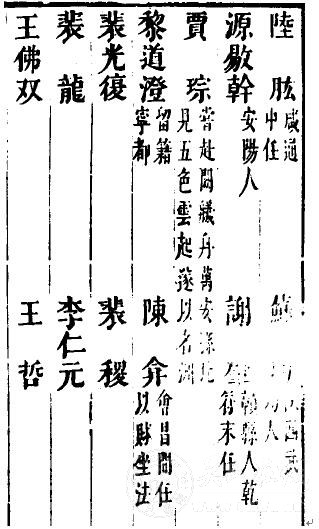 陸肱 咸通中任
蘇
源敭幹 安陽人
謝 縣人乾符末任
賈琮 嘗赴闕艤舟萬安縣見五色雲起遂以名
黎道澄 留籍寧都
陳弁 會昌間任以賍坐法
裴光復
裴稷
裴龍
李仁元
王佛双
王哲